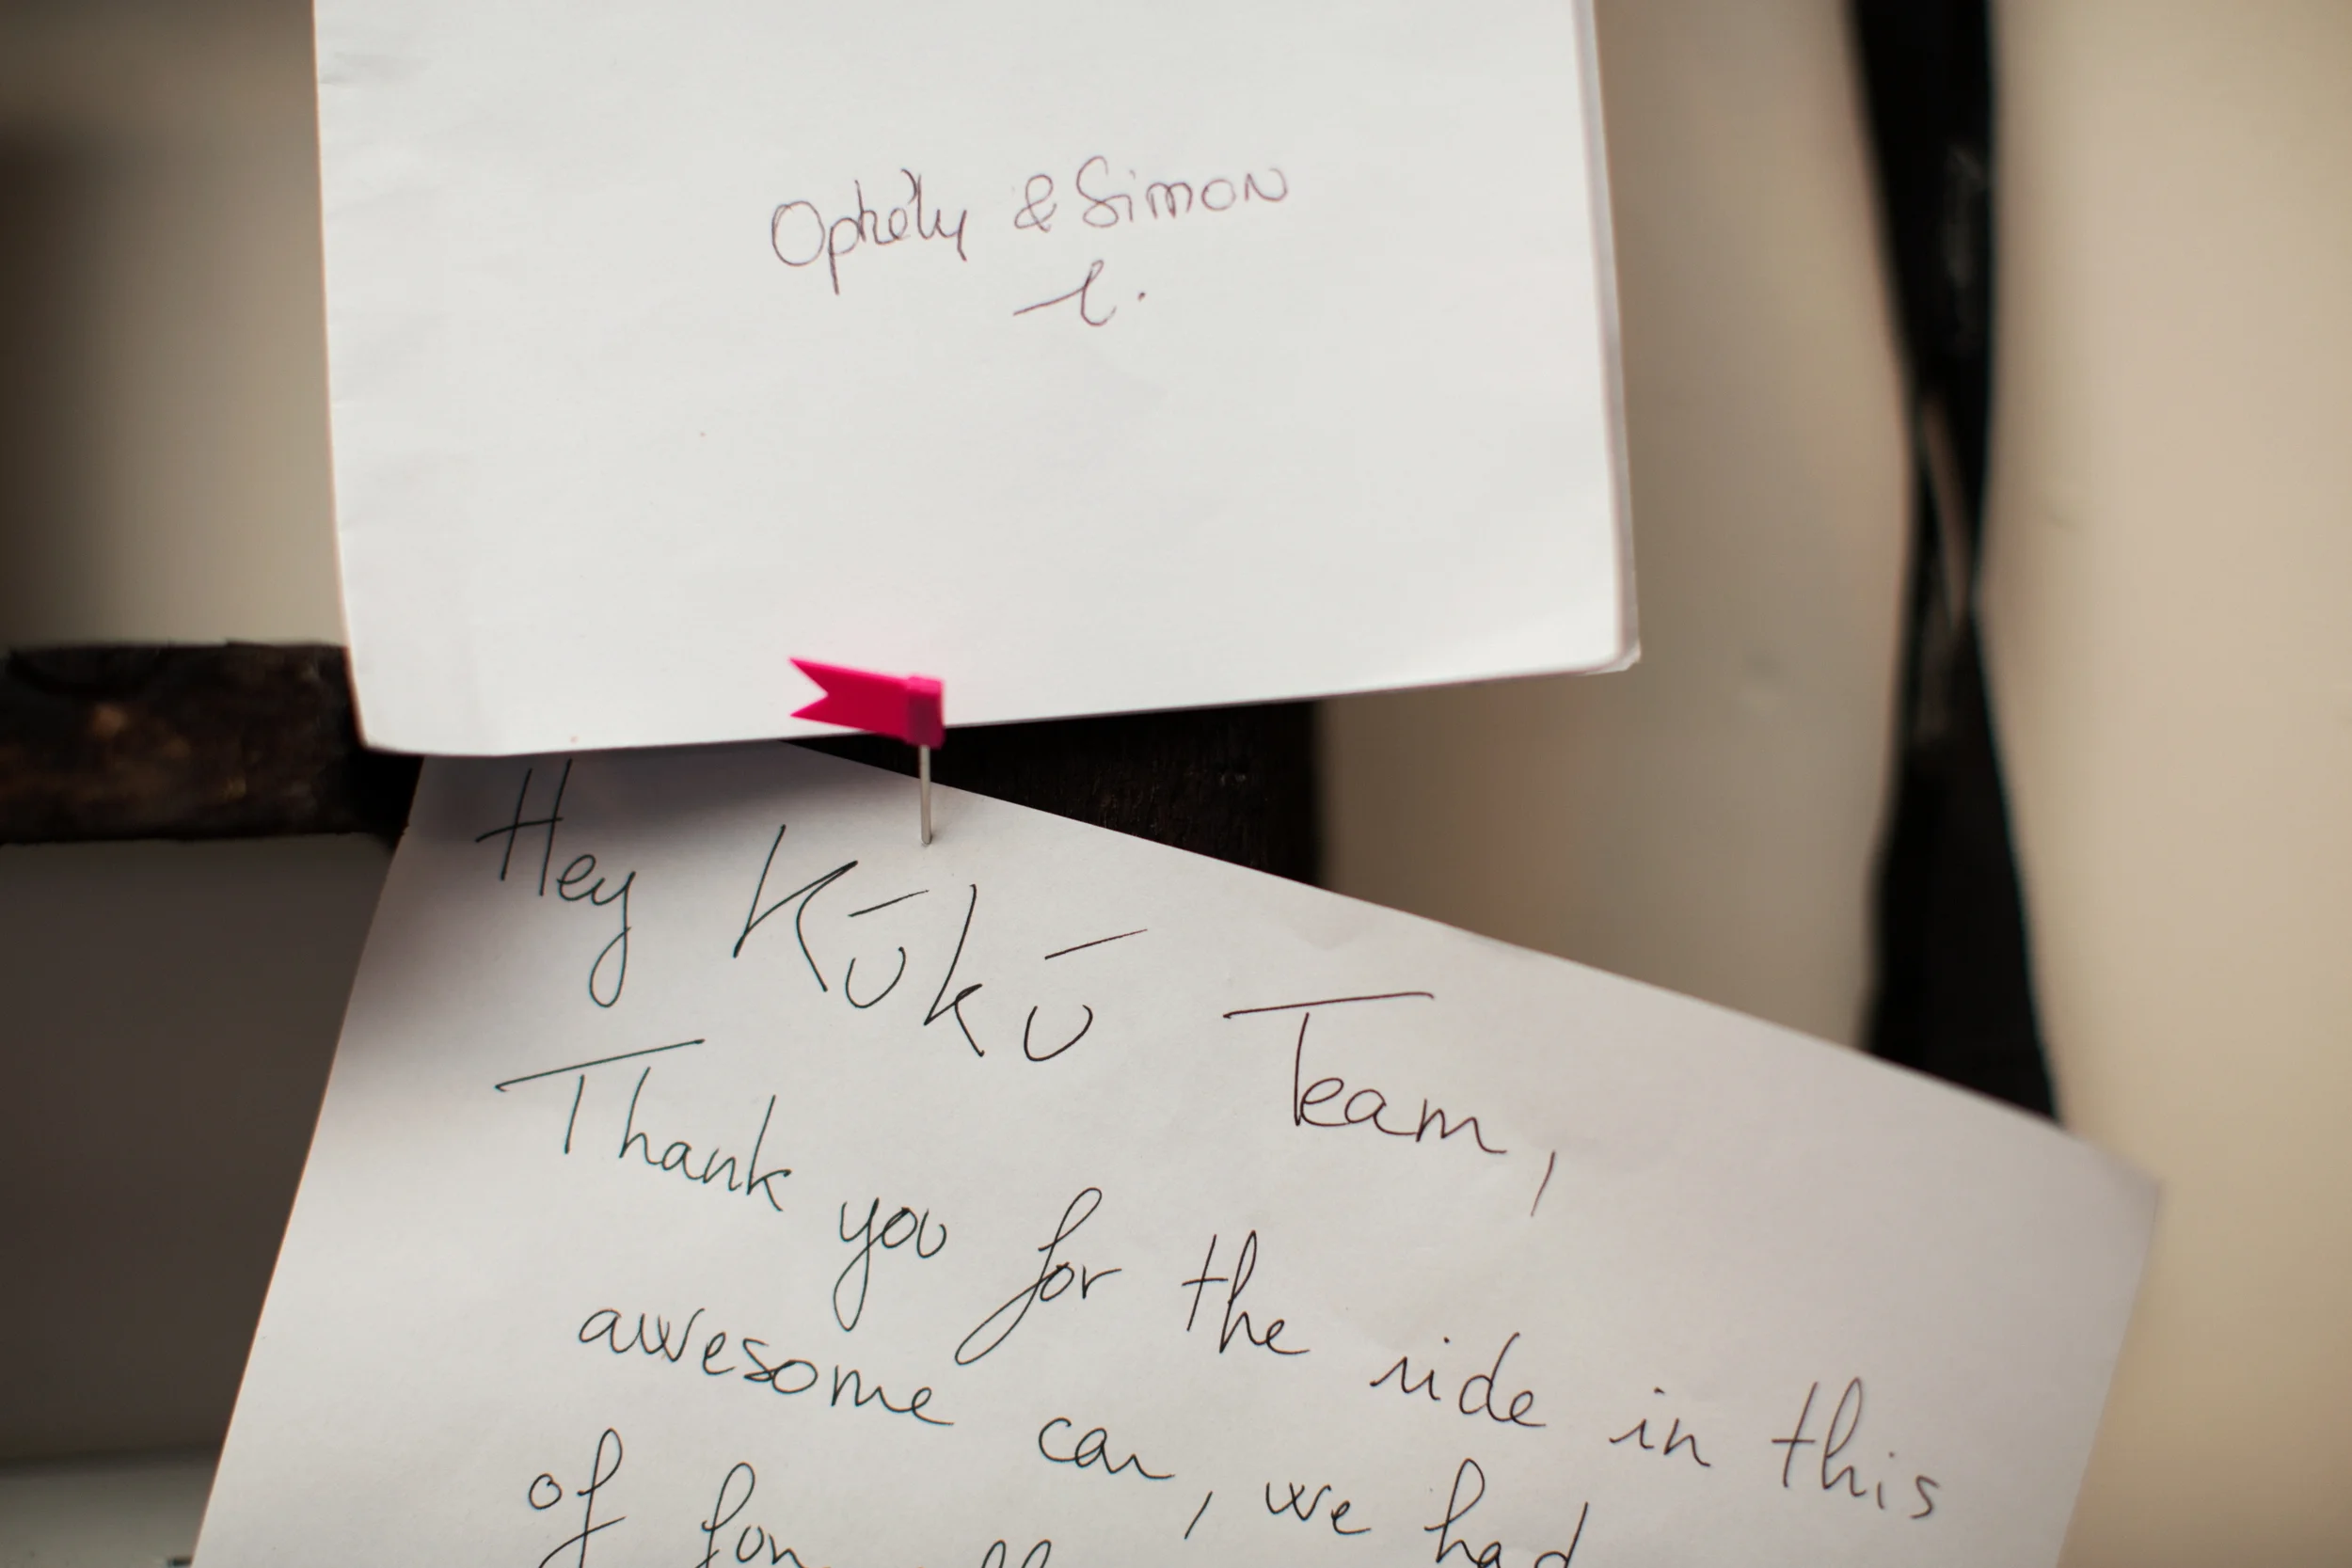 Ophély & Simon
Hey Kūkū Team,
Thank you for the ride in this
awesome car, we had
of fun